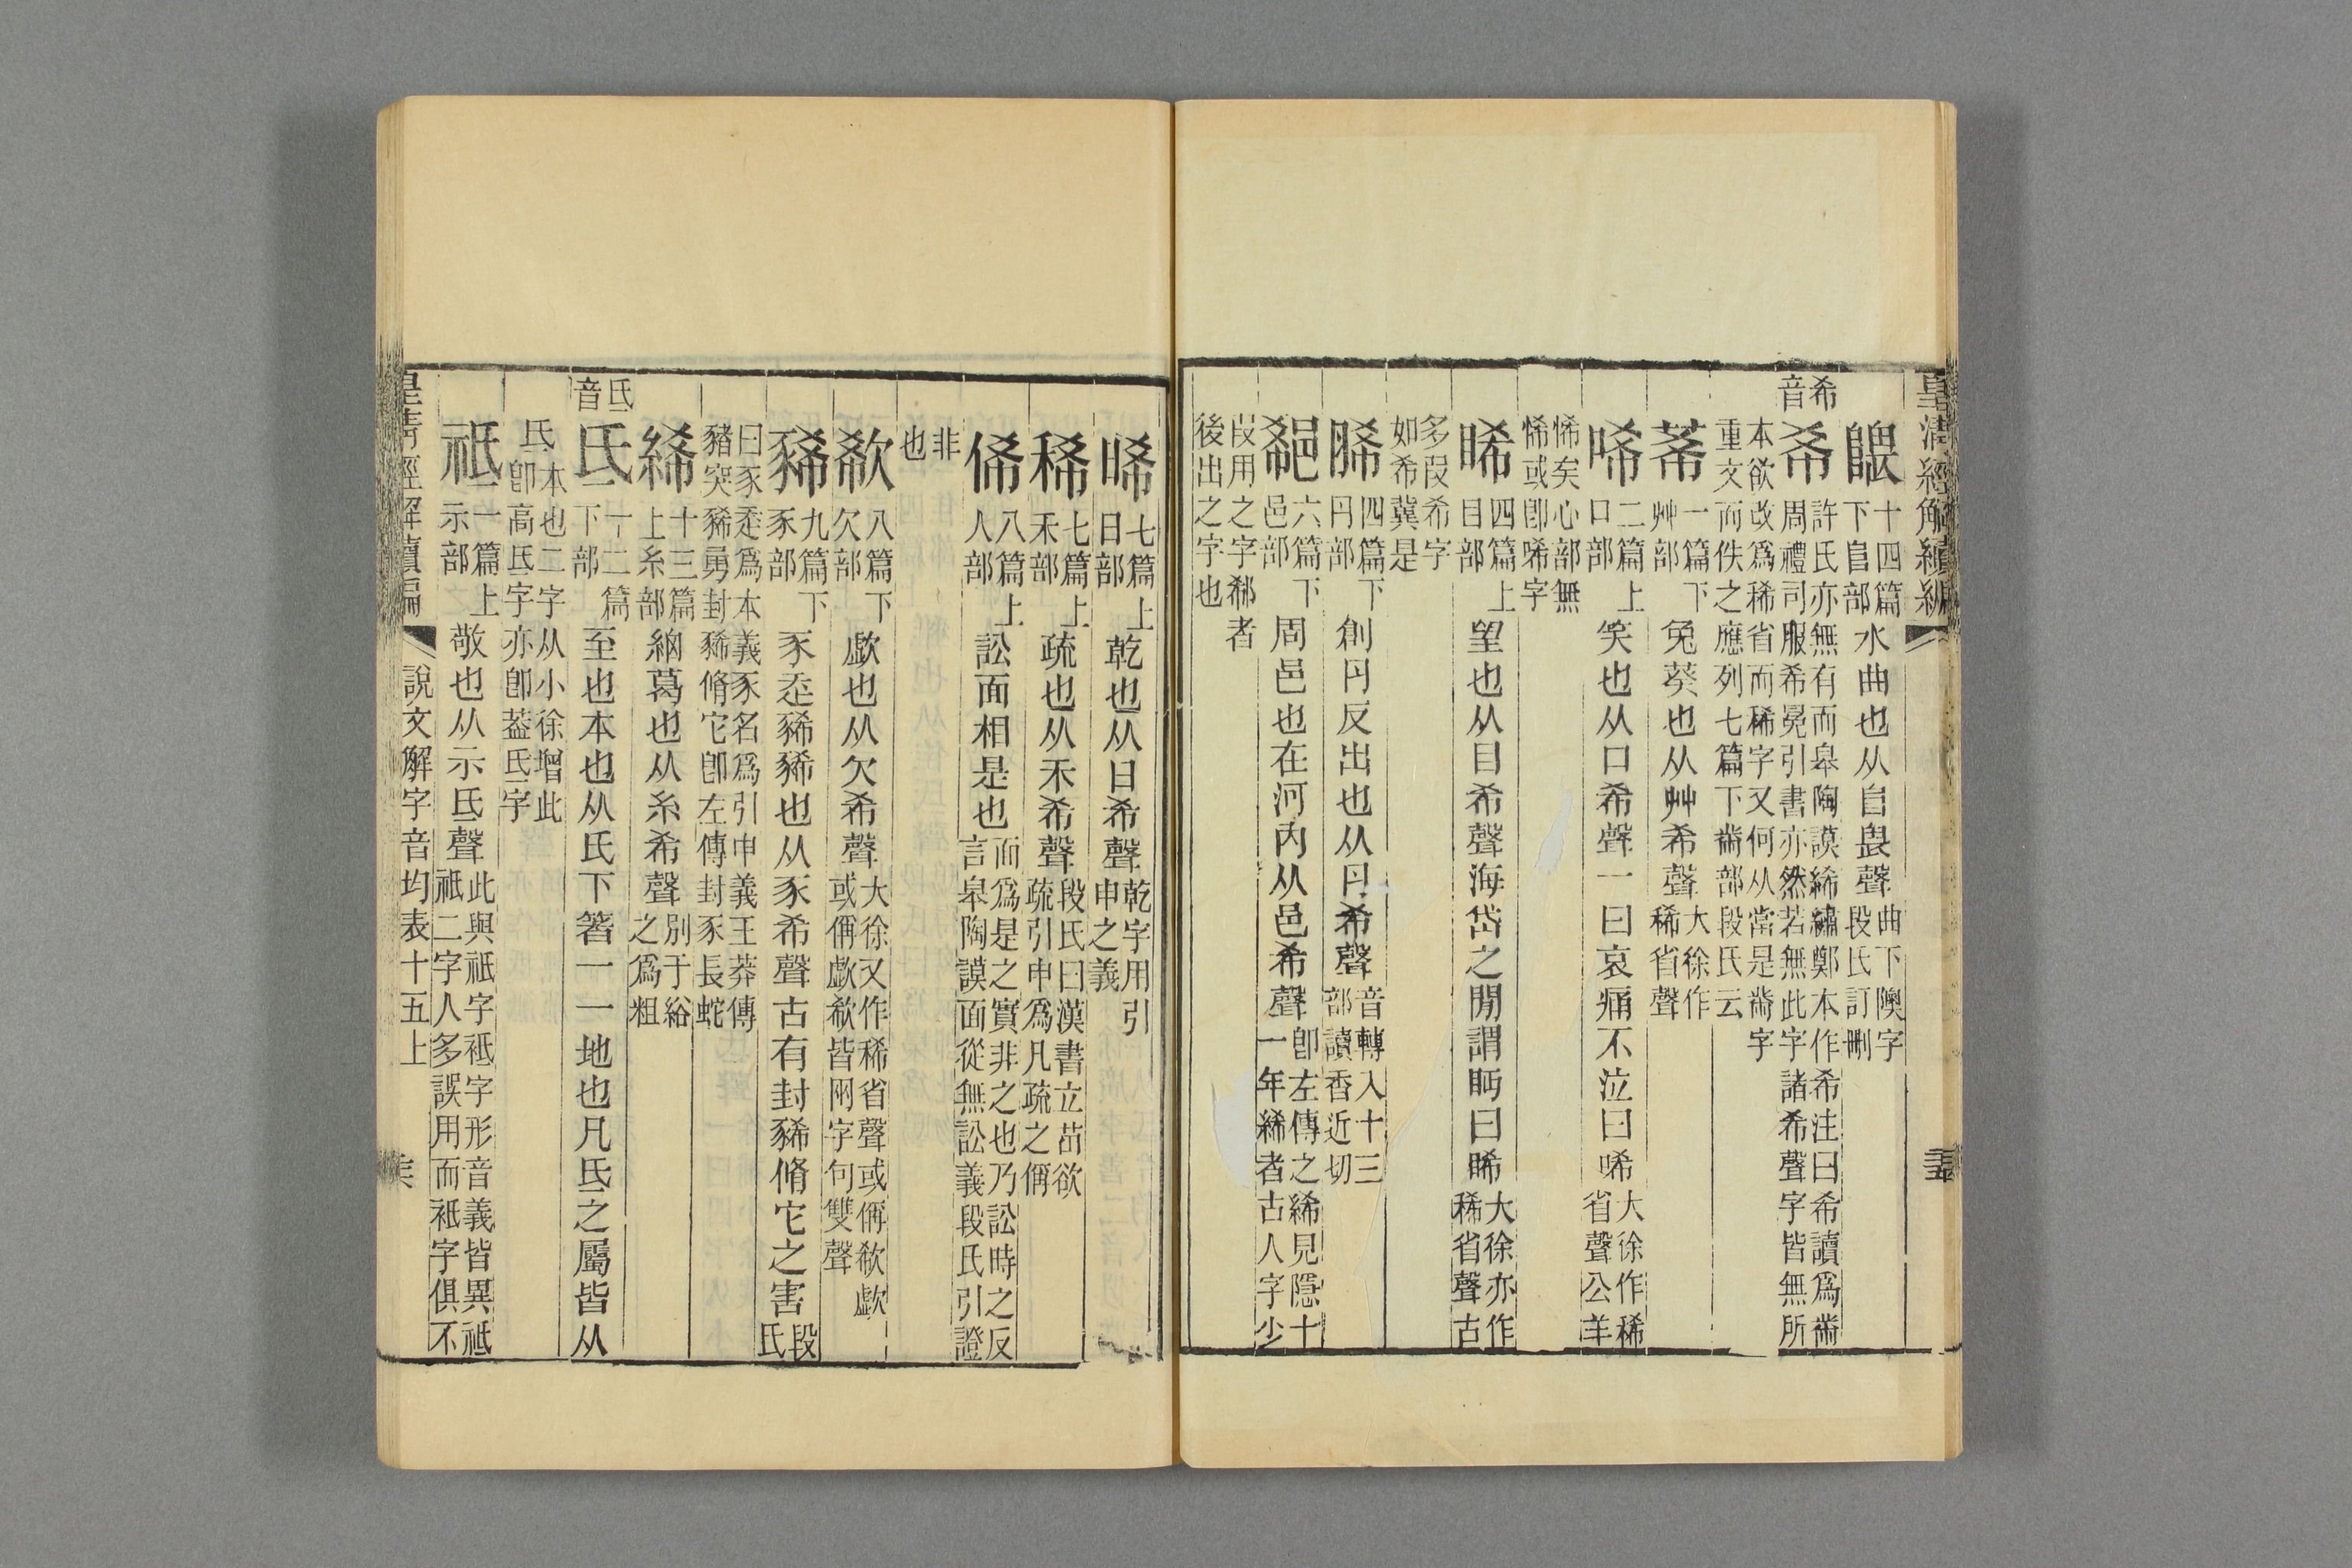 皇清經解續編
隈 十四篇下𨸏部 水曲也从𨸏畏聲 曲下隩字段氏訂刪
希音 希 許氏亦無有而皋陶謨絺繡鄭本作希注曰希讀爲黹周禮司服希冕引書亦然若無此字諸希聲字皆無所
本欲改爲稀省而稀字又何从當是黹字重文而佚之應列七篇下黹部段氏云
莃 一篇下艸部 兔葵也从艸希聲 大徐作稀省聲
唏 二篇上口部 笑也从口希聲一曰哀痛不泣曰唏 大徐作稀省聲公羊
悕矣心部無悕或卽唏字
睎 四篇上目部 望也从目希聲海岱之閒謂眄曰睎 大徐亦作稀省聲古
多叚希字如希冀是
脪 四篇下肉部 創肉反出也从肉希聲 音轉入十三部讀香近切
郗 六篇下邑部 周邑也在河內从邑希聲 卽左傳之絺見隱十一年絺者古人字少
叚用之字郗者後出之字也
晞 七篇上日部 乾也从日希聲 乾字用引申之義
稀 七篇上禾部 疏也从禾希聲 段氏曰漢書立苗欲疏引申爲凡疏之偁
俙 八篇上人部 訟面相是也 而爲是之實非之也乃訟時之反言皋陶謨面從無訟義段氏引證
非也
欷 八篇下欠部 歔也从欠希聲 大徐又作稀省聲或偁欷歔或偁歔欷皆兩字句雙聲
豨 九篇下豕部 豕走豨豨也从豕希聲古有封豨脩它之害 段氏
曰豕走爲本義豕名爲引申義王莽傳豬突豨勇封豨脩它卽左傳封豕長蛇
絺 十三篇上糸部 細葛也从糸希聲 別于綌之爲粗
氐音 氐 十二篇下部 至也本也从氏下箸一一地也凡氐之屬皆从
氐 本也二字从小徐增此氐卽高氐字亦卽葢氐字
祗 一篇上示部 敬也从示氐聲 此與祇字衹字形音義皆異祗祇二字人多誤用而衹字俱不
皇淸經解續編
說文解字音均表十五上